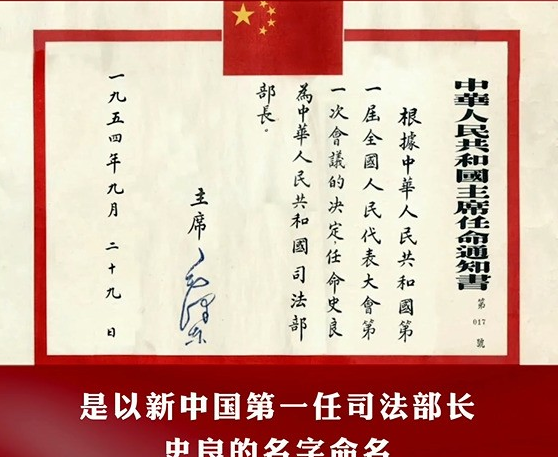 中華人民共和國主席任命通知書
第
017
號
根據中華人民共和國第
一屆全國人民代表大會第
一次會議的决定，任命史良
為中華人民共和國司法部
部長。
主席
毛澤东
一九五四年九月二十九日
是以新中国第一任司法部长
史良的名字命名